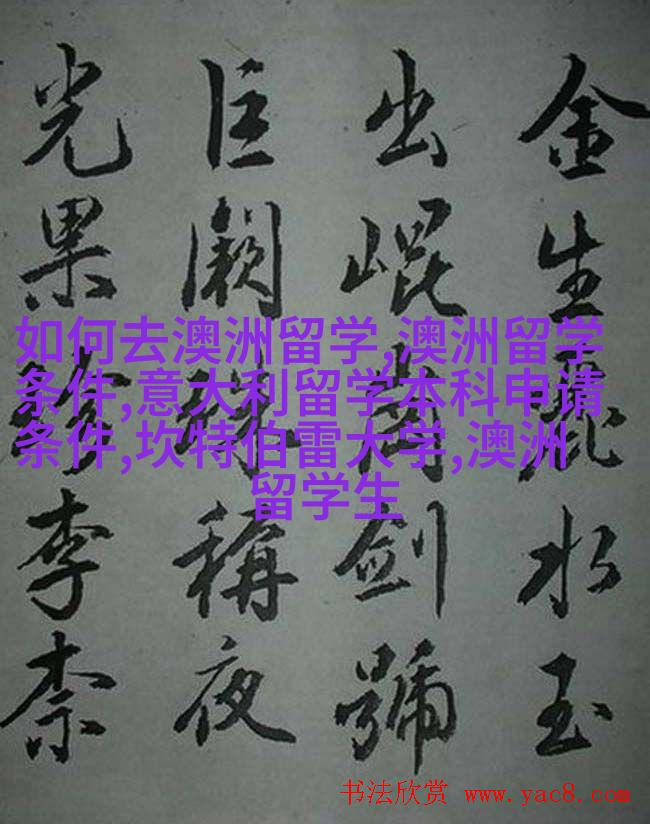 金生麗水玉
出崐岡劍號
巨闕珠稱夜
光果珍李柰
如何去澳洲留学,澳洲留学
条件,意大利留学本科申请
条件,坎特伯雷大学,澳洲
留学生
书法欣赏 www.yac8.com